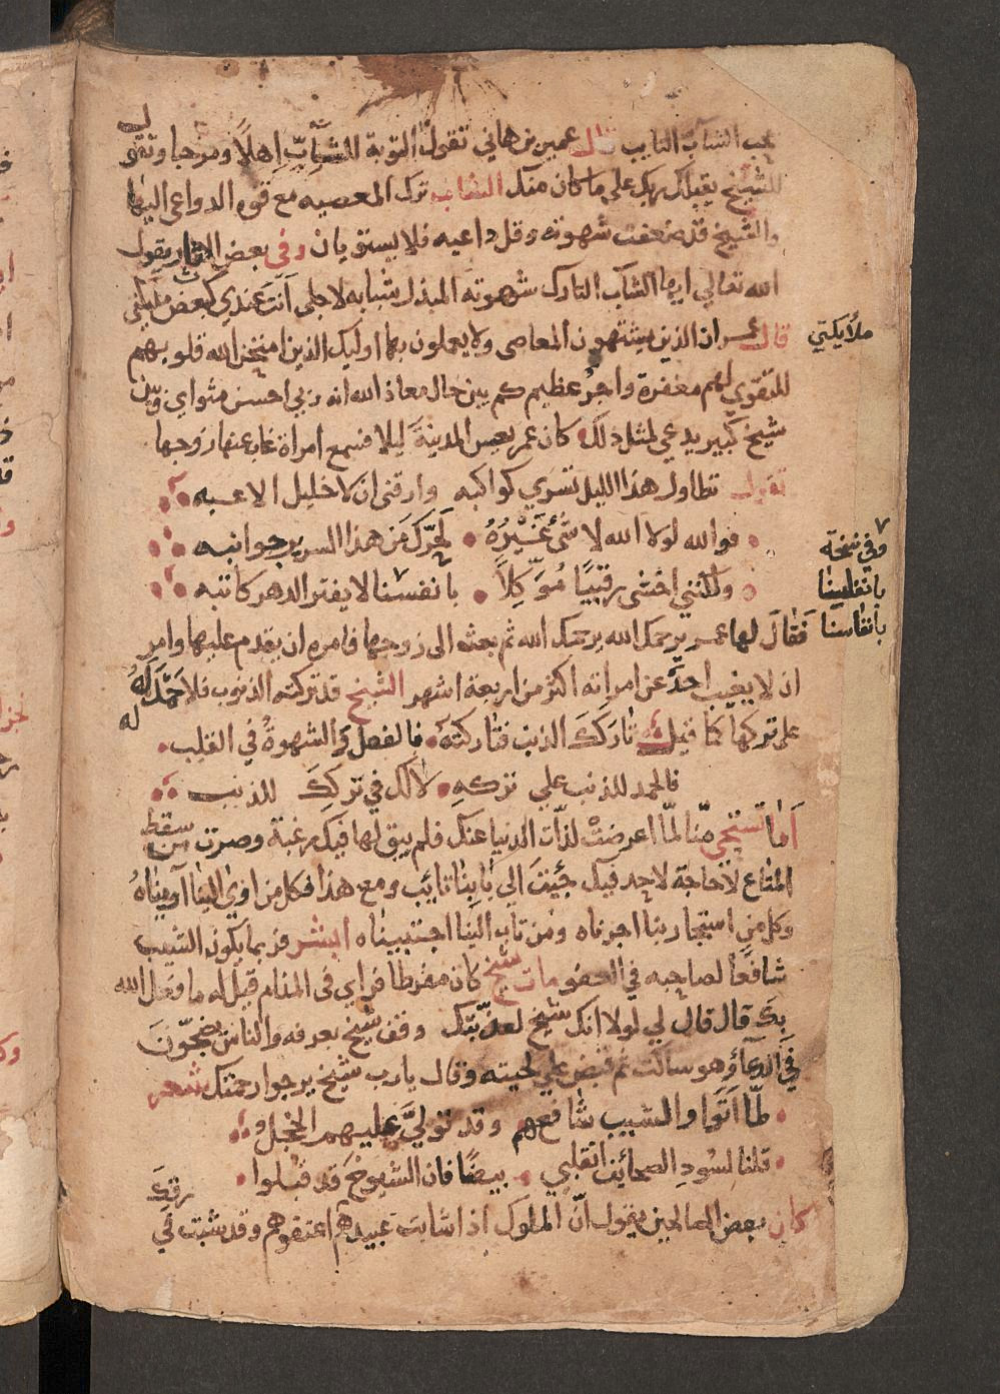 يحب الشابّ التايب قال عمير بن هاني تقول التوبة للشَّابِّ اهلاً ومرحبا وتقول
للشيخ يقبلك ربك على ما كان منك الشاب ترك المعصيه مع قوه الدواعى اليها
والشيخ قد ضعفت شهوته وقل داعيه فلا يستويان وفى بعض الاثار يقول
الله تعالى ايها الشاب التارك شهوته المبذل شبابه لاجلى أنتَ عندي كبعض ملئكتي
ملأيكتي
قال عمر ان الذين يشتهون المعاصى ولا يعملون بها اوليك الذين امتحن الله قلوبهم
للتقوي لهم مغفرة واجرٌ عظيم كم بين حال معاذ الله انه ربي احسن مثواي وبين
شيخ كبير يدعي لمثل ذلك كان عمر يعس المدينة ليلا فسمع امراة غاب عنها زوجها
تقول تطاول هذا الليل تسري كواكبه وارقنى ان لا خليل الاعبه
فوالله لولا الله لا شئَ غَيْرُهُ لَحُرِّكَ مَن هذا السرير جوانبه
وفي نسخة
ولكنني اخشى رقيبًا مُوَكِلاً بانفسنا لا يفتر الدهر كاتبه
بانفلسنا
بانفاسنا
فقَالَ لها عمر يرحمك الله يرحمك الله ثم بعث الى زوجها فامره ان يقدم عليها وامر
ان لا يغيب احدٌ عن امراته اكثر من اربعة اشهر الشيخ قد تركته الذنوب فلا حَمْدَ لَهُ
له
على تركها كما قيل تَارَكَكَ الذنب فتاركتَه فالفعل والشهوةُ في القلب
فالحمد للذنب على تركهِ لا لك في تركِكَ للذنب
أَما تستحي منّا لمّا اعرضتْ لذّات الدنيا عنك فلم يبق لها فيك رغبة وصرت من سقط
المتاع لا حاجة لاحد فيك جئيتَ الي بابنا تائب ومع هذا فكل من اوى الينا آويناهُ
وكل من استجار بنا اجرناه ومن تاب الينا اجتبيناه ابشر فربما يكون الشيب
شافعًا لصاحبه في العفو مات شيخ كان مفرطا فراي فى المنام قيل له ما فعل الله
بك قال قال لي لولا انك شيخ لعذّبتك وقف شيخ بعرفه والناس يضجّونَ
فى الدعآ وهو ساكت ثم قبض على لحيته وقال يارب شيخ يرجوا رحمتك شعر
لمّا اتَوا والشيب شَافعهم وقد توليَّ عليهم الخجل
قلنا لسُودِ الصحائف انقلبي بيضًا فان الشيوخَ قد قبُلوا
كان بعض الصالحين يقول انّ الملوك اذا شابت عبيدهم اعتقوهم وقد شبت في
رقِّكَ